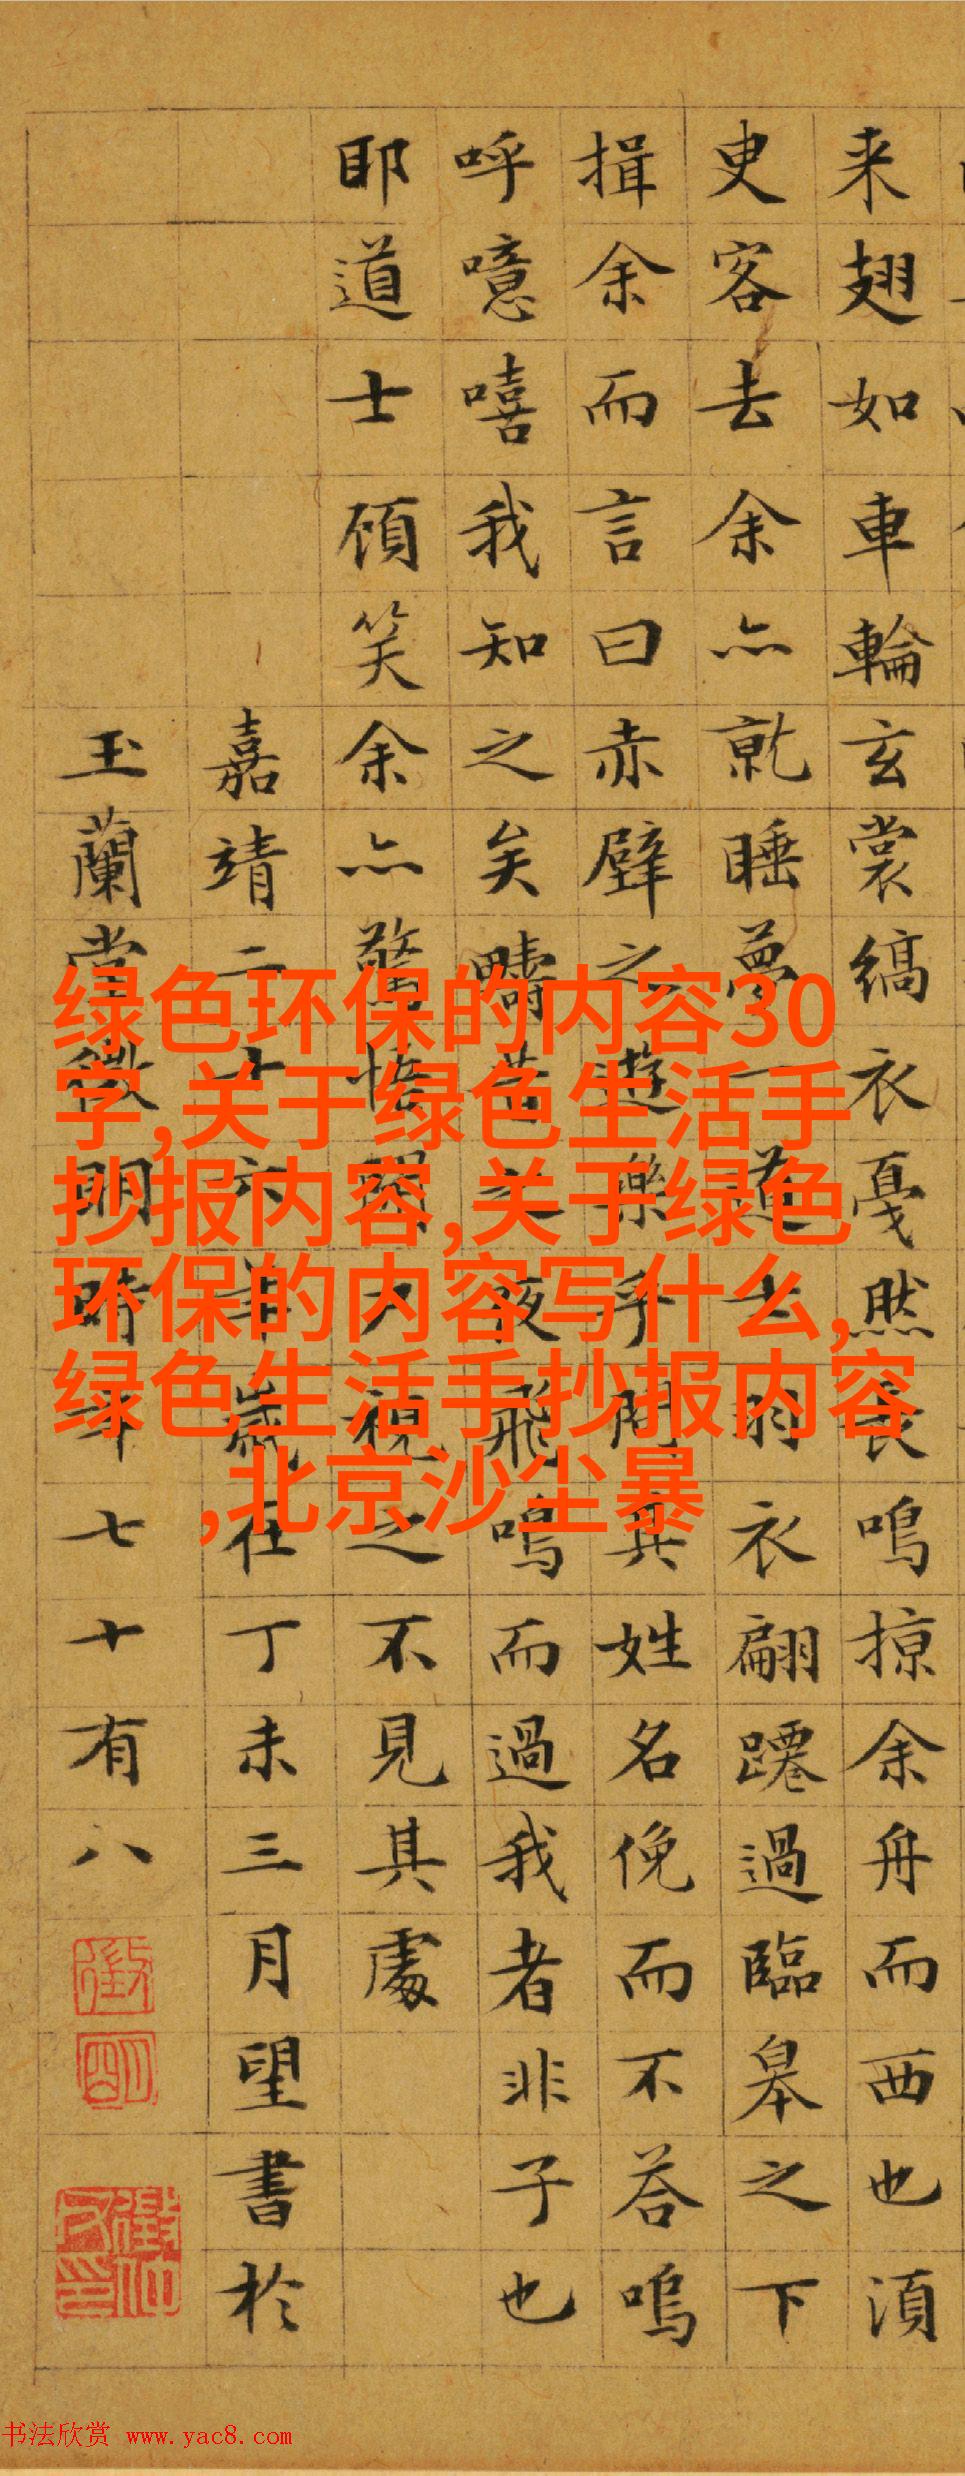 来翅如車輪玄裳縞衣戛然長鳴掠余舟而西也湏
臾客去余亦就睡夢一道士羽衣翩躚過臨皋之下
揖余而言曰赤壁之遊樂乎問其姓名俛而不荅嗚
呼噫嘻我知之矣疇昔之夜飛鳴而過我者非子也
耶道士頋笑余亦驚悟開戶視之不見其處
嘉靖二十六年歲在丁未三月望書於
玉蘭堂徵明時年七十有八
绿色环保的内容30
字,关于绿色生活手
抄报内容,关于绿色
环保的内容写什么,
绿色生活手抄报内容
,北京沙尘暴
书法欣赏 www.yac8.com